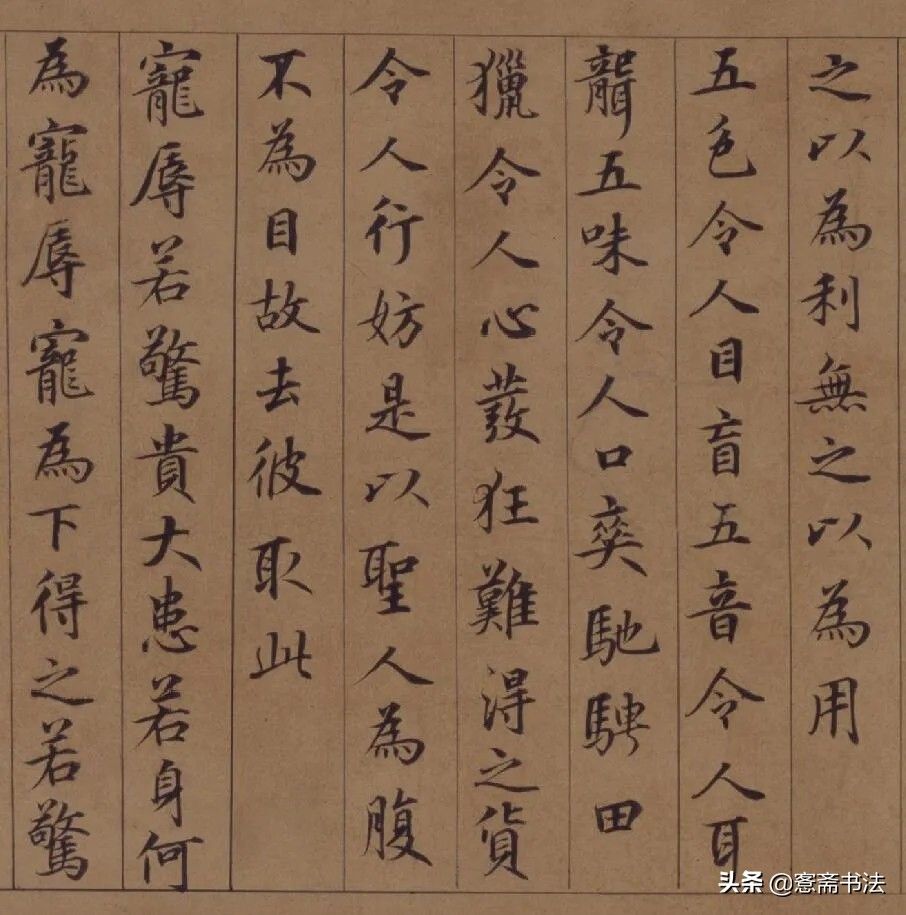 之以為利無之以為用
五色令人目盲五音令人耳
聾五味令人口爽馳騁田
獵令人心發狂難得之貨
令人行妨是以聖人為腹
不為目故去彼取此
寵辱若驚貴大患若身何
為寵辱寵為下得之若驚
头条 @窓斋书法